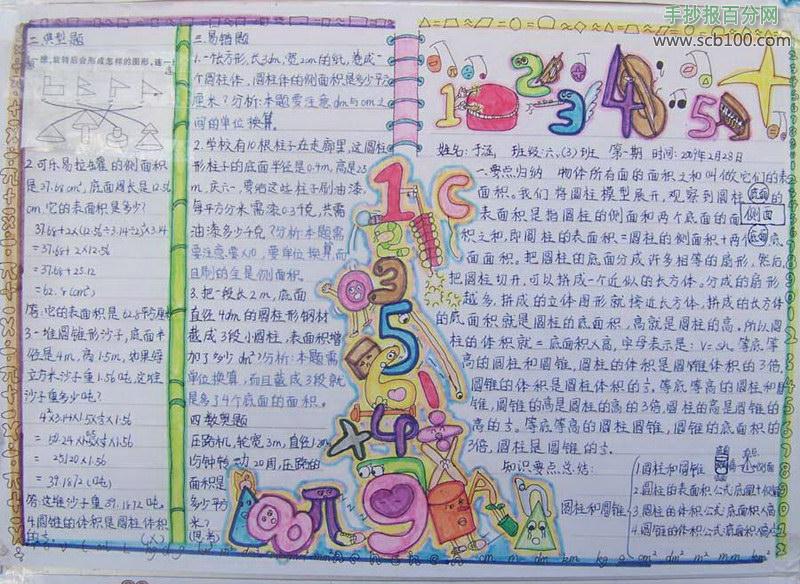 手抄报百分网
www.scb100.com
二.典型题
2.可乐易拉罐的侧面积
是37.68cm²,底面周长是12.56
cm.它的表面积是多少?
37.68+2×(12.56÷3.14÷2)²×3.14
=37.68+2×12.56
=37.68+25.12
=62.8(cm²)
3.一堆圆锥形沙子,底面半
径是4m,高1.5m,如果每
立方米沙子重1.56吨,这堆
沙子重多少吨?
=39.1872(吨)
答:这堆沙子重39.1872吨。
4.圆锥的体积是圆柱体积
三.易错题
1.一张长方形,长3dm,宽2cm的纸,卷成一
个圆柱体,圆柱体的侧面积是多少平方
厘米?分析:本题要注意dm与cm之
间的单位换算。
2.学校有10根柱子在走廊里,这圆
形柱子的底面半径是0.4m,高是2.5
m,庆六一,要给这些柱子刷油漆,
每平方分米需漆0.3千克,共需
油漆多少千克?分析:本题需
要注意要×10,要单位换算,而
且刷的全是侧面积。
3.把一段长2m,底面
直径4dm的圆柱形钢材
截成3段小圆柱,表面积增
加了多少dm²?分析:本题需
单位换算,而且截成3段就
是多了4个底面的面积。
四.数奥题
压路机,轮宽3m,直径1.20m
每分钟转动20周,压路的
面积是
多少平方
米?
(思考)
1
2
3
4
5
姓名:于涵 班级:六.(3)班 第一期 时间:2009年2月28日
一.要点归纳 物体所有面的面积之和叫做它们的表
面积。我们将圆柱模型展开,观察到圆柱
的表面积是指圆柱的侧面和两个底面的面
积之和,即圆柱的表面积=圆柱的侧面积+两个底
面面积。把圆柱的底面分成许多相等的扇形,然后
把圆柱切开,可以拼成一个近似的长方体,分成的扇形
越多,拼成的立体图形就接近长方体,拼成的长方体
的底面积就是圆柱的底面积,高就是圆柱的高。所以圆
柱的体积就=底面积×高,字母表示是:V=sh。等底等
高的圆柱和圆锥,圆柱的体积是圆锥体积的3倍,
圆锥的体积是圆柱体积的⅓。等底等高的圆柱和圆
锥,圆锥的高是圆柱的高的3倍,圆柱的高是圆锥的
高的⅓。等底等高的圆柱圆锥,圆锥的底面积的
3倍,圆柱是圆锥的⅓。
底面
侧面
底面
知识要点总结:
圆柱和圆锥
1.圆柱和圆锥
2.圆柱的表面积公式:底面+侧面
3.圆柱的体积公式:底面积×高
4.圆锥的体积公式:底面积×高×⅓
1
2
3
5
6
×4
9